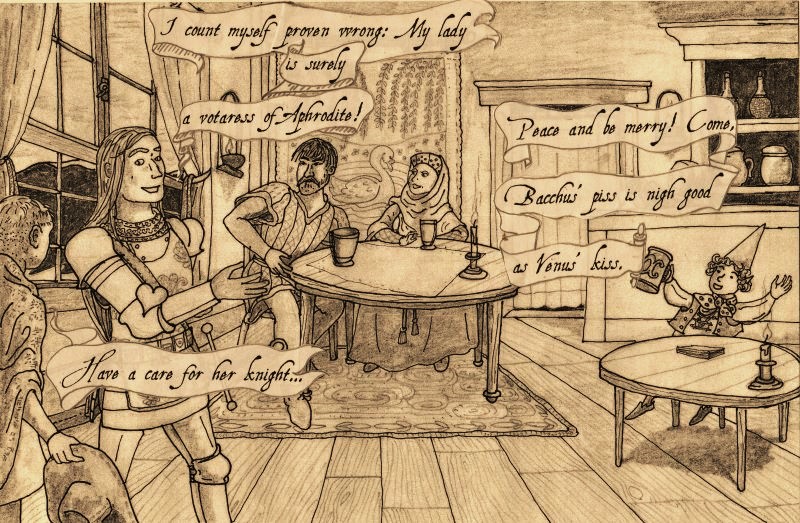 I count myself proven wrong: My lady
is surely
a votaress of Aphrodite!
Peace and be merry! Come,
Bacchus' piss is nigh good
as Venus' kiss.
Have a care for her knight...